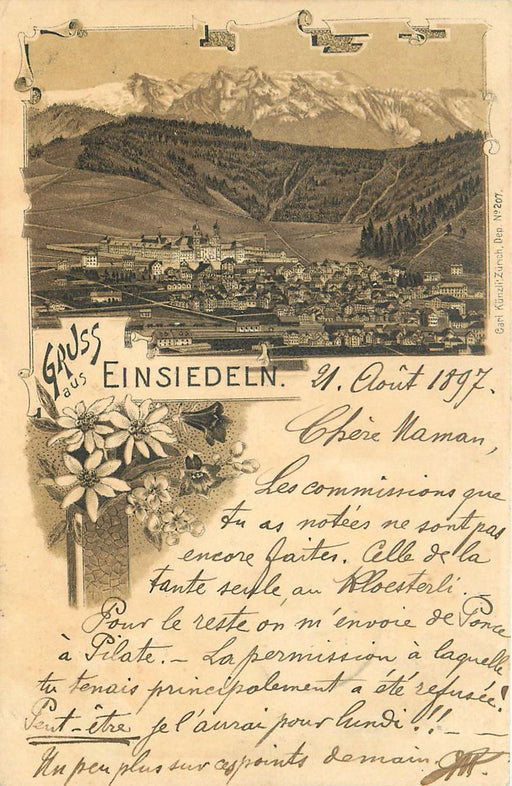 Carl Künzli, Zürich, Dep. Nº 207.
GRUSS
aus
EINSIEDELN.
21. Août 1897.
Chère Maman,
Les commissions que
tu as notées ne sont pas
encore faites. Celle de la
tante seule au Kloesterli.
Pour le reste on m'envoie de Ponce
à Pilate. – La permission à laquelle
tu tenais principalement a été refusée!
Peut-être je l'aurai pour lundi!! – –
Un peu plus sur ces points demain.